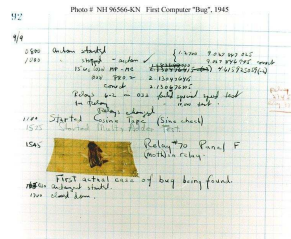 Photo # NH 96566-KN First Computer "Bug", 1945
92
9/9
0800 Antan started
1000 " stopped - antan ✓
13"uc (032) MP-MC
033 PRO 2 2.130476415
correct 2.130676415
Relays 6-2 in 033 failed special speed test
in Relay " test
Relays changed
1100 Started Cosine Tape (Sine check)
1525 Started Multy Adder Test
1545 Relay #70 Panel F
(moth) in relay.
First actual case of bug being found.
antangent started.
1700 closed down.